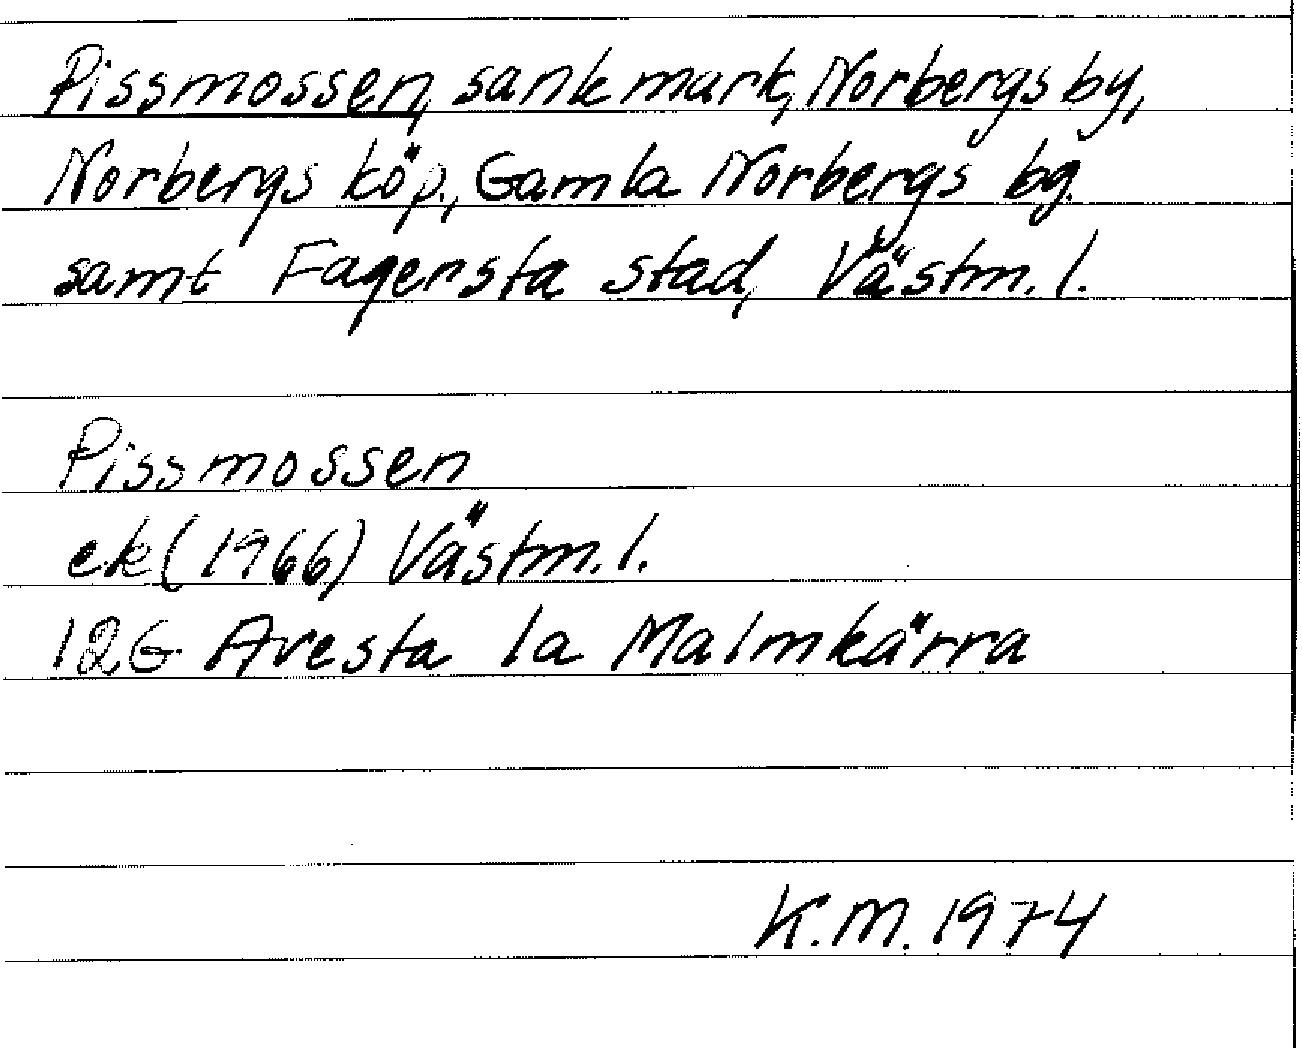 Pissmossen, sank mark, Norbergs by,
Norbergs köp., Gamla Norbergs bg.
samt Fagersta stad, Västm. l.
Pissmossen
ek (1966) Västm. l.
12G Avesta 1a Malmkärra
K.M. 1974